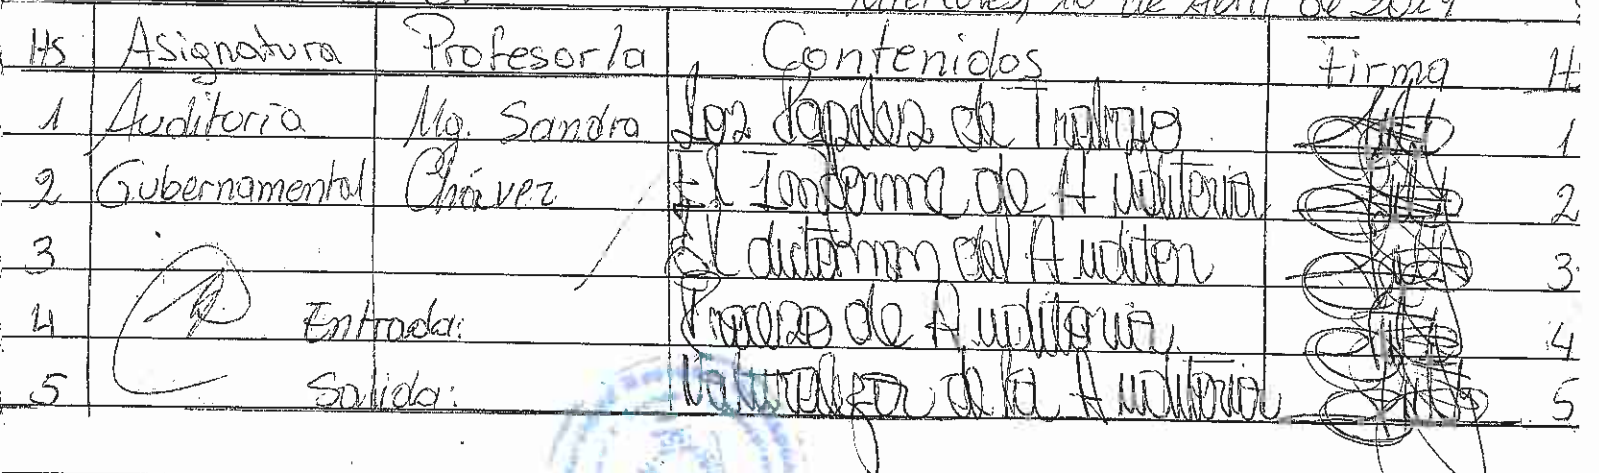 Miércoles, 10 de Abril de 2019
Hs Asignatura Profesor/a Contenidos Firma H
1 Auditoria Mg. Sandra Los Papeles de Trabajo 1
2 Gubernamental Chávez El Informe de Auditoria 2
3 El dictamen del Auditor 3
4 Entrada: Proceso de Auditoria 4
5 Salida: Naturaleza de la Auditoria 5